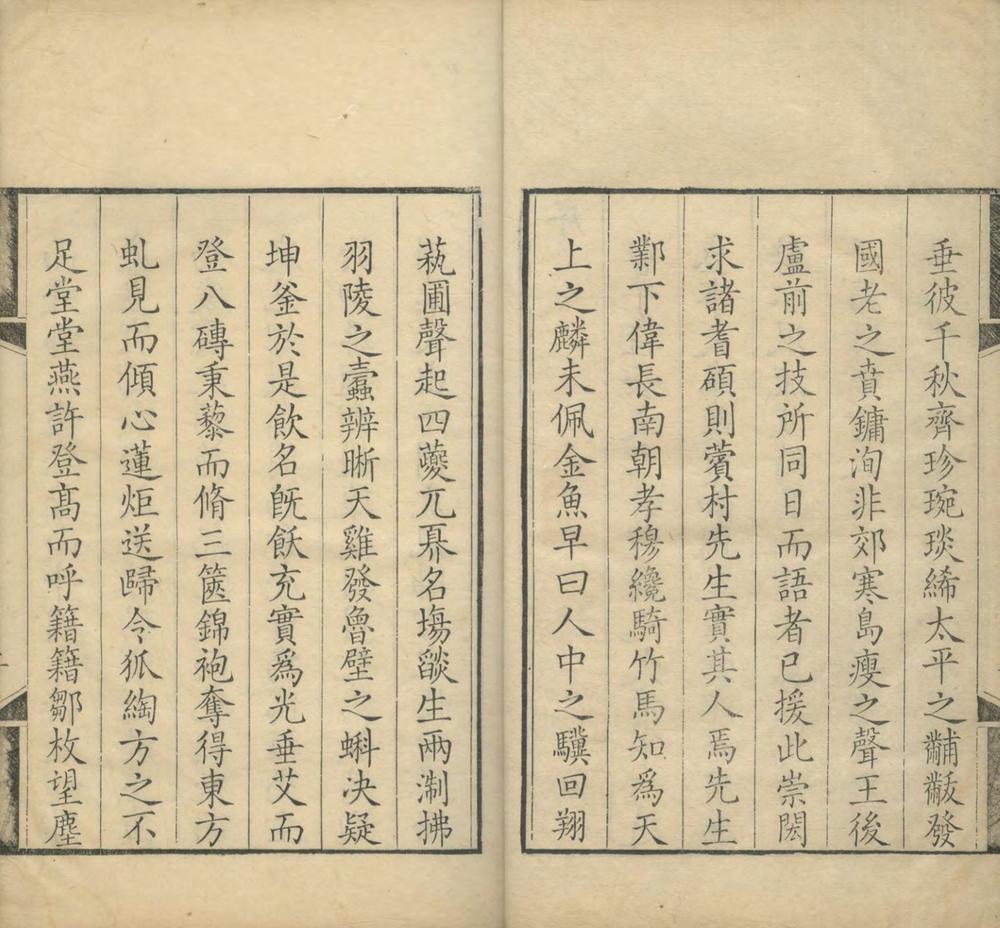 垂彼千秋齊珍琬琰絺太平之黼黻發
國老之賁鏞洵非郊寒島瘦之聲王後
盧前之技所同日而語者已援此崇閎
求諸耆碩則薲村先生實其人焉先生
鄴下偉長南朝孝穆纔騎竹馬知為天
上之麟未佩金魚早曰人中之驥回翔
蓺圃聲起四夔兀奡名塲燄生兩淛拂
羽陵之蠧辨晣天雞發魯壁之蝌决疑
坤釜於是飲名旣飫充實爲光垂艾而
登八磚秉藜而脩三篋錦袍奪得東方
虬見而傾心蓮炬送歸令狐綯方之不
足堂堂燕許登髙而呼籍籍鄒枚望塵